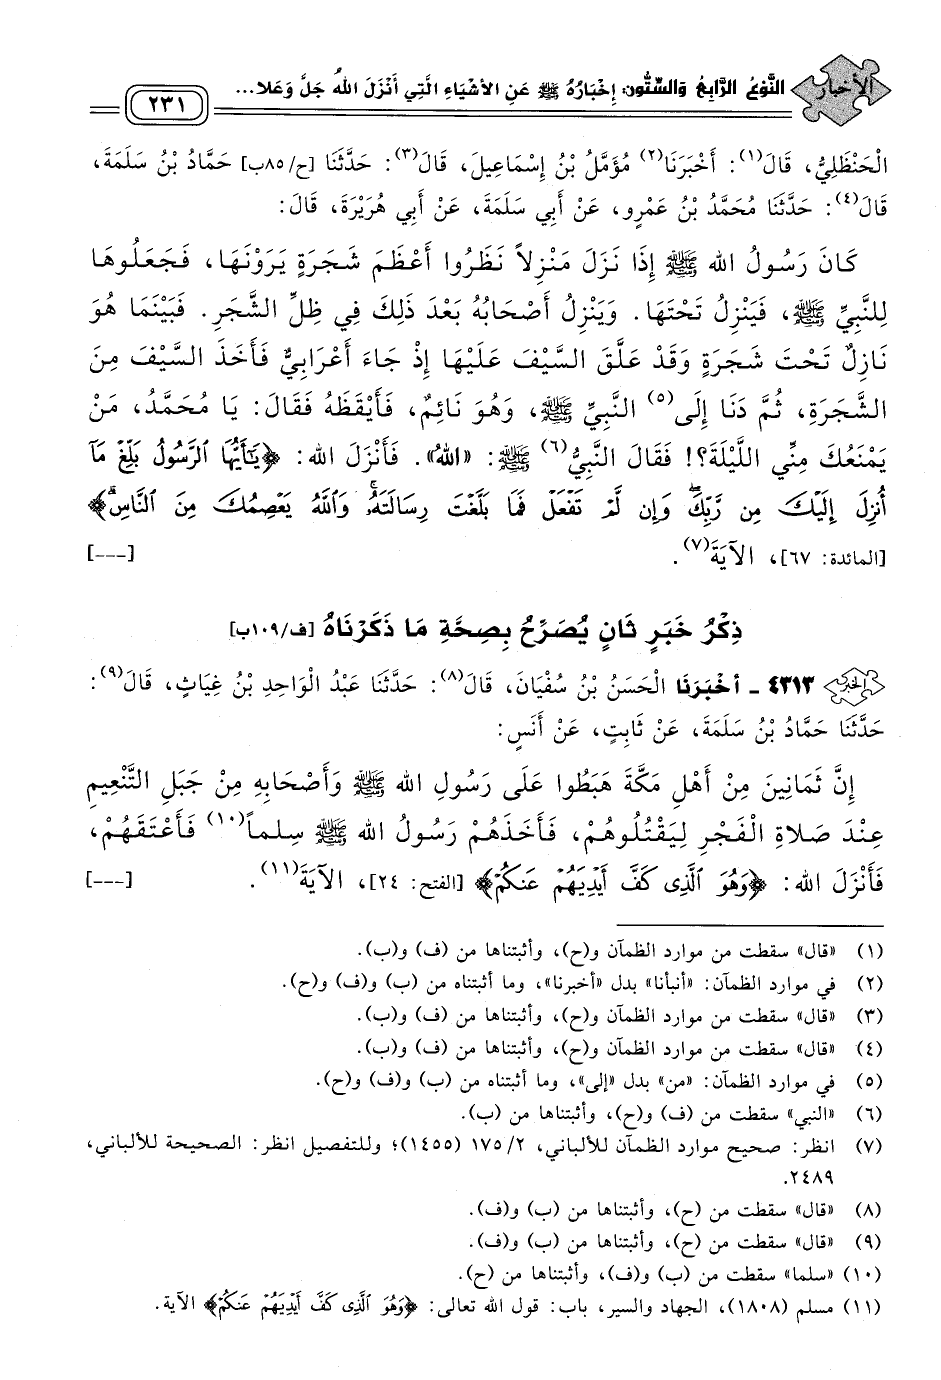 الأخبار النَّوْعُ الرَّابِعُ وَالسِّتُّونَ: إِخْبَارُهُ ﷺ عَنِ الأَشْيَاءِ الَّتِي أَنْزَلَ اللهُ جَلَّ وَعَلَا...
٢٣١
الْحَنْظَلِيُّ، قَالَ(١): أَخْبَرَنَا(٢) مُؤَمَّلُ بْنُ إِسْمَاعِيلَ، قَالَ(٣): حَدَّثَنَا [ح/٨٥ب] حَمَّادُ بْنُ سَلَمَةَ،
قَالَ(٤): حَدَّثَنَا مُحَمَّدُ بْنُ عَمْرٍو، عَنْ أَبِي سَلَمَةَ، عَنْ أَبِي هُرَيْرَةَ، قَالَ:
كَانَ رَسُولُ اللهِ ﷺ إِذَا نَزَلَ مَنْزِلاً نَظَرُوا أَعْظَمَ شَجَرَةٍ يَرَوْنَهَا، فَجَعَلُوهَا
لِلنَّبِيِّ ﷺ، فَيَنْزِلُ تَحْتَهَا. وَيَنْزِلُ أَصْحَابُهُ بَعْدَ ذَلِكَ فِي ظِلِّ الشَّجَرِ. فَبَيْنَمَا هُوَ
نَازِلٌ تَحْتَ شَجَرَةٍ وَقَدْ عَلَّقَ السَّيْفَ عَلَيْهَا إِذْ جَاءَ أَعْرَابِيٌّ فَأَخَذَ السَّيْفَ مِنَ
الشَّجَرَةِ، ثُمَّ دَنَا إِلَى(٥) النَّبِيِّ ﷺ، وَهُوَ نَائِمٌ، فَأَيْقَظَهُ فَقَالَ: يَا مُحَمَّدُ، مَنْ
يَمْنَعُكَ مِنِّي اللَّيْلَةَ؟! فَقَالَ النَّبِيُّ(٦) ﷺ: «اللهُ». فَأَنْزَلَ اللهُ: ﴿يَٰٓأَيُّهَا ٱلرَّسُولُ بَلِّغۡ مَآ
أُنزِلَ إِلَيۡكَ مِن رَّبِّكَۖ وَإِن لَّمۡ تَفۡعَلۡ فَمَا بَلَّغۡتَ رِسَالَتَهُۥۚ وَٱللَّهُ يَعۡصِمُكَ مِنَ ٱلنَّاسِۗ﴾
[المائدة: ٦٧]، الآيَةَ(٧). [---]
ذِكْرُ خَبَرٍ ثَانٍ يُصَرِّحُ بِصِحَّةِ مَا ذَكَرْنَاهُ [ف/١٠٩ب]
٤٣١٣ - أَخْبَرَنَا الْحَسَنُ بْنُ سُفْيَانَ، قَالَ(٨): حَدَّثَنَا عَبْدُ الْوَاحِدِ بْنُ غِيَاثٍ، قَالَ(٩):
حَدَّثَنَا حَمَّادُ بْنُ سَلَمَةَ، عَنْ ثَابِتٍ، عَنْ أَنَسٍ:
إِنَّ ثَمَانِينَ مِنْ أَهْلِ مَكَّةَ هَبَطُوا عَلَى رَسُولِ اللهِ ﷺ وَأَصْحَابِهِ مِنْ جَبَلِ التَّنْعِيمِ
عِنْدَ صَلَاةِ الْفَجْرِ لِيَقْتُلُوهُمْ، فَأَخَذَهُمْ رَسُولُ اللهِ ﷺ سِلْماً(١٠) فَأَعْتَقَهُمْ،
فَأَنْزَلَ اللهُ: ﴿وَهُوَ ٱلَّذِي كَفَّ أَيۡدِيَهُمۡ عَنكُمۡ﴾ [الفتح: ٢٤]، الآيَةَ(١١). [---]
(١) «قال» سقطت من موارد الظمآن و(ح)، وأثبتناها من (ف) و(ب).
(٢) في موارد الظمآن: «أنبأنا» بدل «أخبرنا»، وما أثبتناه من (ب) و(ف) و(ح).
(٣) «قال» سقطت من موارد الظمآن و(ح)، وأثبتناها من (ف) و(ب).
(٤) «قال» سقطت من موارد الظمآن و(ح)، وأثبتناها من (ف) و(ب).
(٥) في موارد الظمآن: «من» بدل «إلى»، وما أثبتناه من (ب) و(ف) و(ح).
(٦) «النبي» سقطت من (ف) و(ح)، وأثبتناها من (ب).
(٧) انظر: صحيح موارد الظمآن للألباني، ٢/ ١٧٥ (١٤٥٥)؛ وللتفصيل انظر: الصحيحة للألباني،
٢٤٨٩.
(٨) «قال» سقطت من (ح)، وأثبتناها من (ب) و(ف).
(٩) «قال» سقطت من (ح)، وأثبتناها من (ب) و(ف).
(١٠) «سلما» سقطت من (ب) و(ف)، وأثبتناها من (ح).
(١١) مسلم (١٨٠٨)، الجهاد والسير، باب: قول الله تعالى: ﴿وَهُوَ ٱلَّذِي كَفَّ أَيۡدِيَهُمۡ عَنكُمۡ﴾ الآية.